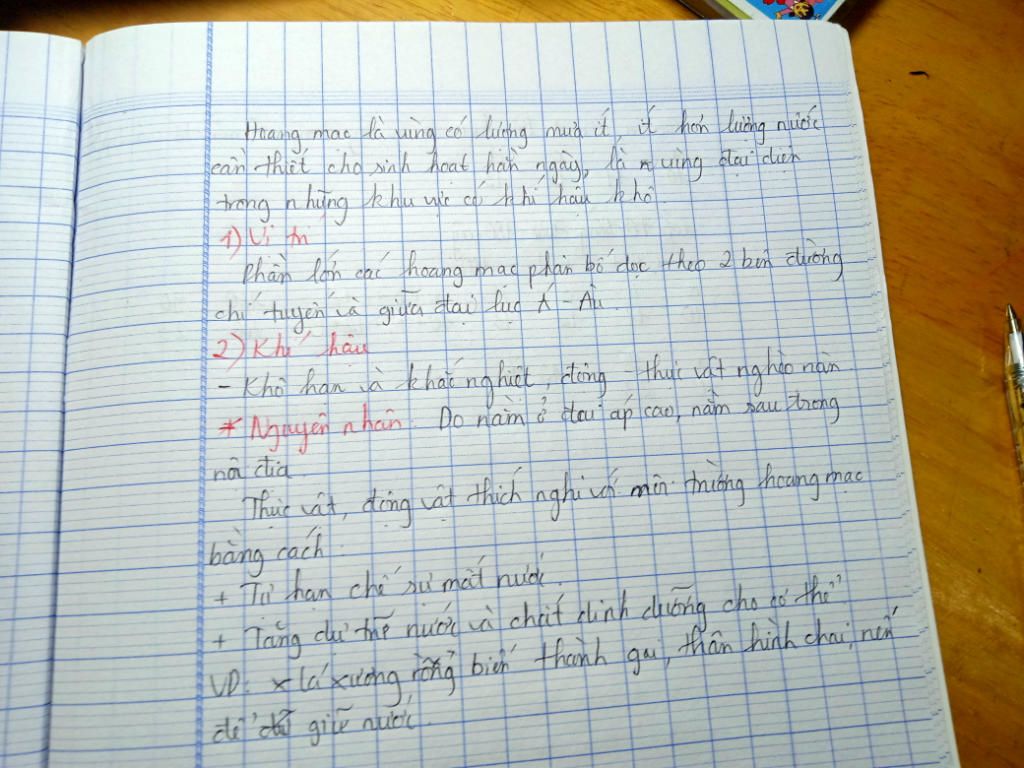 Hoang mạc là vùng có lượng mưa ít, ít hơn lượng nước
cần thiết cho sinh hoạt hằn ngày, là vùng đại diện
trong những khu vực có khí hậu khô.
1) Vị trí
Phần lớn các hoang mạc phân bố dọc theo 2 bên đường
chí tuyến và giữa đại lục Á - Âu.
2) Khí hậu
- Khô hạn và khắc nghiệt, động - thực vật nghèo nàn
* Nguyên nhân. Do nằm ở đai áp cao, nằm sau trong
nội địa
Thực vật, động vật thích nghi với môi trường hoang mạc
bằng cách.
+ Tự hạn chế sự mất nước.
+ Tăng dự trữ nước và chất dinh dưỡng cho cơ thể
VD. lá xương rồng biến thành gai, thân hình chai, nén
để giữ nước.